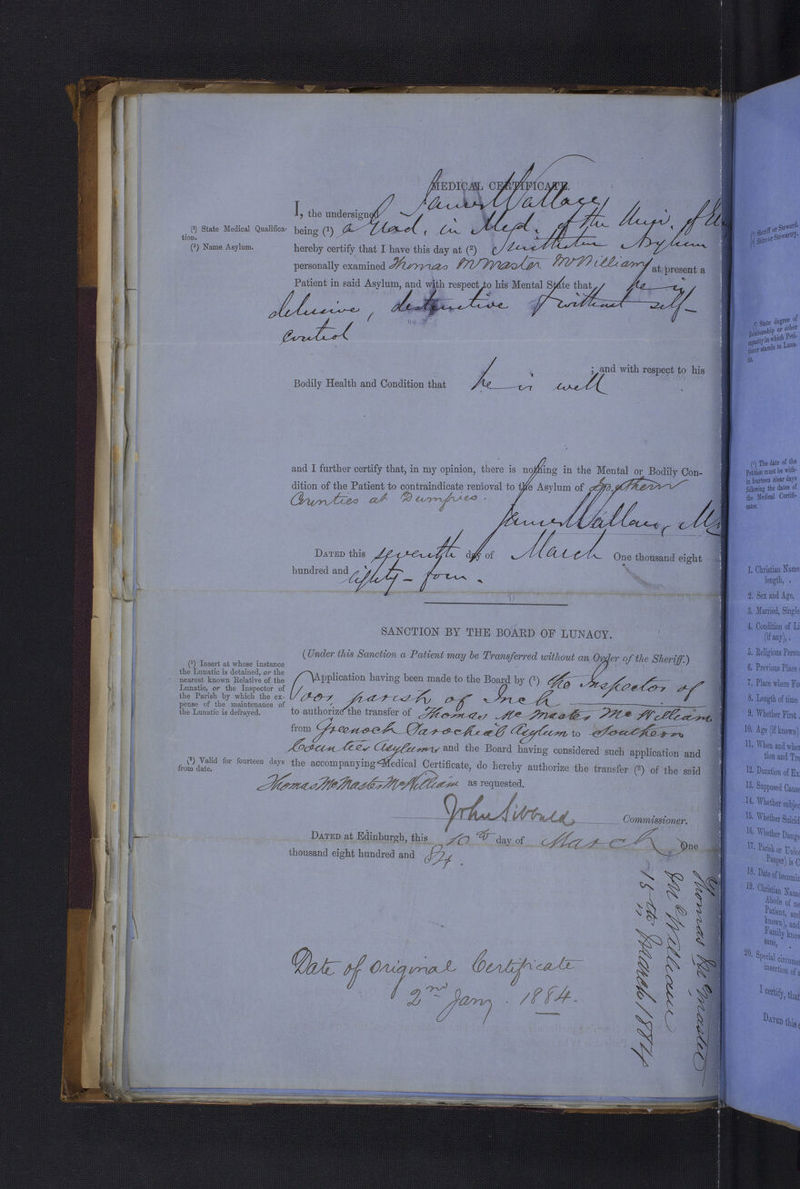 MEDICAL CERTIFICATE.
I, the undersigned James Wallace
(¹) State Medical Qualifica-
tion.
being (¹) a Grad. in Med. of the Univ. of
(²) Name Asylum.
hereby certify that I have this day at (²) Asylum
personally examined Thomas McMaster McWilliam at present a
Patient in said Asylum, and with respect to his Mental State that he is
delusive, destructive & without self-
control
; and with respect to his
Bodily Health and Condition that he is well
and I further certify that, in my opinion, there is nothing in the Mental or Bodily Con-
dition of the Patient to contraindicate removal to the Asylum of Southern
Counties at Dumfries.
James Wallace,
DATED this seventh day of March One thousand eight
hundred and eighty-four.
SANCTION BY THE BOARD OF LUNACY.
(Under this Sanction a Patient may be Transferred without an Order of the Sheriff.)
(¹) Insert at whose instance
the Lunatic is detained, or the
nearest known Relative of the
Lunatic, or the Inspector of
the Parish by which the ex-
pense of the maintenance of
the Lunatic is defrayed.
Application having been made to the Board by (¹) the Inspector of
Poor parish of Inch
to authorize the transfer of Thomas McMaster McWilliam
from Greenock Parochial Asylum to Southern
Counties Asylum and the Board having considered such application and
(²) Valid for fourteen days
from date.
the accompanying Medical Certificate, do hereby authorize the transfer (²) of the said
Thomas McMaster McWilliam as requested.
John Sibbald Commissioner.
DATED at Edinburgh, this 10th day of March One
thousand eight hundred and 84.
Date of Original Certificate
2nd Jany. 1884.
Thomas McMaster
McWilliam
15th March 1884
(¹) Sheriff or Steward.
(¹) State degree of
Relationship or other
capacity in which Peti-
tioner stands to Luna-
tic.
(¹) The date of the
Petition must be with-
in fourteen clear days
following the dates of
the Medical Certifi-
cates.
1. Christian Name
length, .
2. Sex and Age,
3. Married, Single
4. Condition of Li
(if any), .
5. Religious Persu
6. Previous Place
7. Place where Fo
8. Length of time
9. Whether First
10. Age (if known)
11. When and whe
tion and Tre
12. Duration of Ex
13. Supposed Cause
14. Whether subjec
15. Whether Suicid
16. Whether Dang
17. Parish or Unio
Pauper) is C
18. Date of becomin
19. Christian Name
Abode of ne
Patient, an
known), and
Family know
sane, .
20. Special circums
insertion of
I certify, that
DATED this